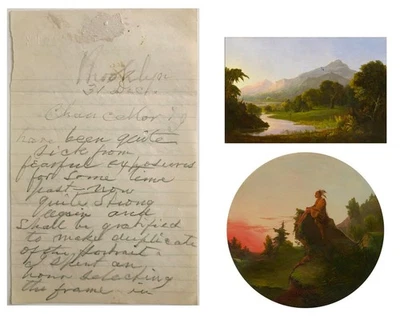 Brooklyn
31 Dec.
have been quite
sick from
fearful exposures
for some time
past now
quite strong
again and
shall be gratified
to make duplicate
of the portrait
spent an
hour selecting
the frame in